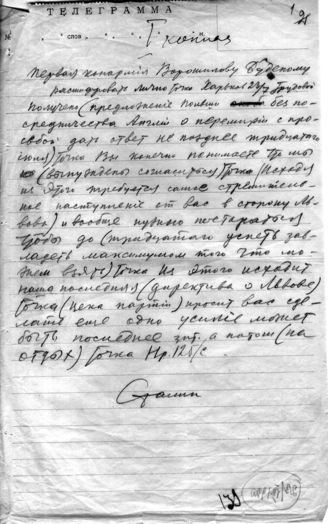 ТЕЛЕГРАММА
№ слов
копия
Первая конармия Ворошилову Буденому
расшифровать лично точка Харьков 24/7 Трудовой
получено (предложение Польши без по-
средничества Англии о перемирии с про-
сьбой дать ответ не позднее тридцатого
июля) точка Вы конечно понимаете что мы
(вынуждены согласиться) точка Исходя
из этого требуется самое стремитель-
ное наступление от вас в сторону Ль-
вова) и вообще нужно постараться
чтобы до (тридцатого успеть зав-
ладеть максимумом того что мо-
жем взять) точка Из этого исходит
наша последняя (директива о Львове)
точка (цека партии) просит вас сде-
лать еще одно усилие может
быть последнее зпт. а потом (на
отдых) точка Нр.
Сталин